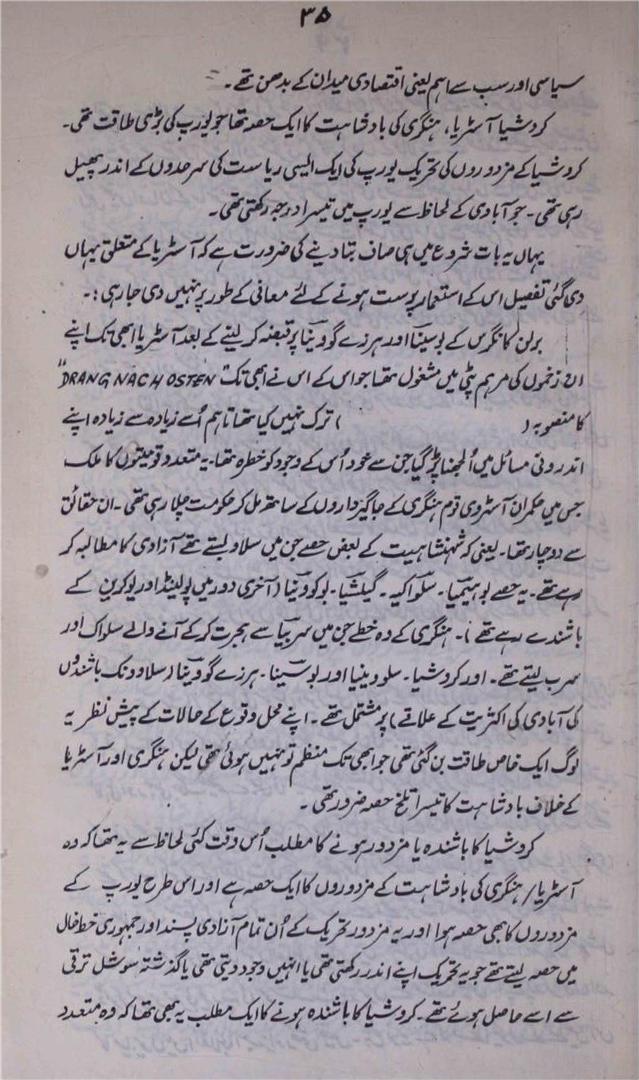 ۳۵
سیاسی اور سب سے اہم یعنی اقتصادی میدان کے بدھن تھے۔
کروشیا آسٹریا، ہنگری کی بادشاہت کا ایک حصہ تھا جو یورپ کی بڑی طاقت تھی۔
کروشیا کے مزدوروں کی تحریک یورپ کی ایک ایسی ریاست کی سرحدوں کے اندر پھیل
رہی تھی۔ جو آبادی کے لحاظ سے یورپ میں تیسرا درجہ رکھتی تھی۔
یہاں یہ بات شروع میں ہی صاف بتا دینے کی ضرورت ہے کہ آسٹریا کے متعلق یہاں
دی گئی تفصیل اس کے استعمار پرست ہونے کے لئے معافی کے طور پر نہیں دی جا رہی:۔
برلن کانگرس کے بوسینا اور ہرزے گووینا پر قبضہ کر لینے کے بعد آسٹریا ابھی تک اپنے
ان زخموں کی مرہم پٹی میں مشغول تھا جو اس کے اس نے ابھی تک "DRANG NACH OSTEN"
کا منصوبہ ( ) ترک نہیں کیا تھا تاہم اُسے زیادہ سے زیادہ اپنے
اندرونی مسائل میں اُلجھنا پڑ گیا جن سے خود اُس کے وجود کو خطرہ تھا۔ یہ متعدد قومیتوں کا ملک
جس میں حکمران آسٹروی قوم ہنگری کے جاگیرداروں کے ساتھ مل کر حکومت چلا رہی تھی۔ ان حقائق
سے دوچار تھا۔ یعنی کہ شہنشاہیت کے بعض حصے جن میں سلاو بستے تھے آزادی کا مطالبہ کر
رہے تھے۔ یہ حصے بوہیمیا۔ سلواکیہ۔ گیلشیا۔ بوکووینا (آخری دور میں پولینڈ اور یوکرین کے
باشندے رہے تھے)۔ ہنگری کے وہ خطے جن میں سربیا سے ہجرت کر کے آنے والے سلواک اور
سرب بستے تھے۔ اور کروشیا۔ سلووینیا اور بوسینا۔ ہرزے گووینا (سلاوونک باشندوں
کی آبادی کی اکثریت کے علاقے) پر مشتمل تھے۔ اپنے محل وقوع کے حالات کے پیش نظر یہ
لوگ ایک خاص طاقت بن گئی تھی جو ابھی تک منظم تو نہیں ہوئی تھی لیکن ہنگری اور آسٹریا
کے خلاف بادشاہت کا تیسرا تلخ حصہ ضرور تھی۔
کروشیا کا باشندہ یا مزدور ہونے کا مطلب اُس وقت کئی لحاظ سے یہ تھا کہ وہ
آسٹریا/ ہنگری کی بادشاہت کے مزدوروں کا ایک حصہ ہے اور اس طرح یورپ کے
مزدوروں کا بھی حصہ ہوا اور یہ مزدور تحریک کے اُن تمام آزادی پسند اور جمہوری خط خال
میں حصہ لیتے تھے جو یہ تحریک اپنے اندر رکھتی تھی یا انہیں وجود دیتی تھی یا گذشتہ سوشل ترقی
سے اسے حاصل ہوئے تھے۔ کروشیا کا باشندہ ہونے کا ایک مطلب یہ بھی تھا کہ وہ متعدد